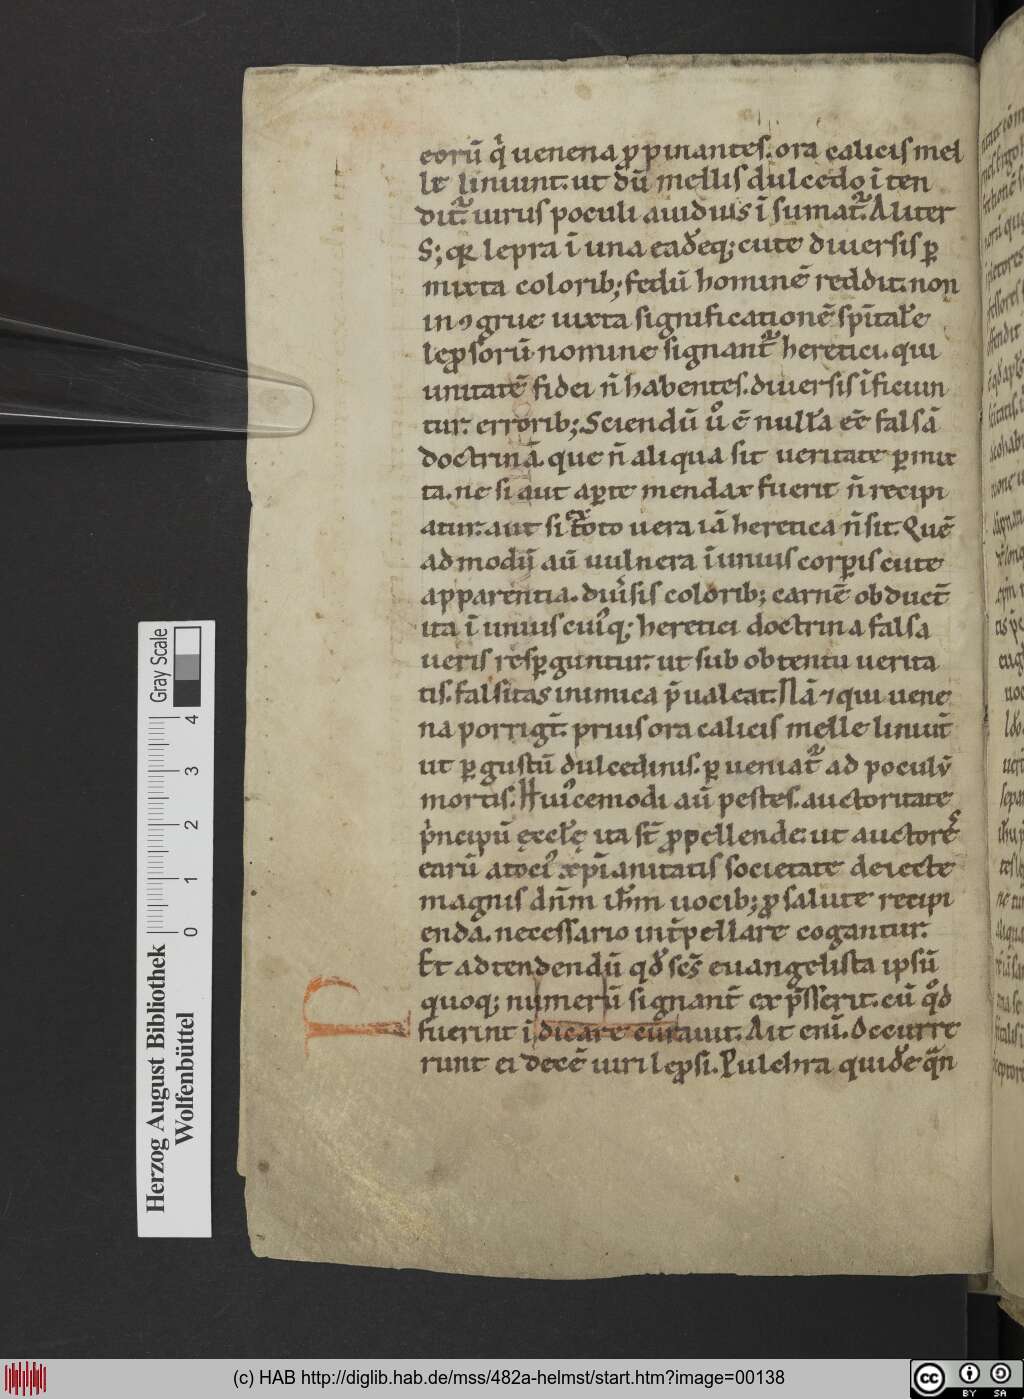 eorū q̇ uenena ꝓpinantes. ora calicis mel
le liniunt. ut dū mellis dulcedo ī ten
dit᷑ uirus poculi auidius ī sumat᷑. Aliter
S; qꝛ lepra ī una eadēq; cute diuersis ꝑ
mixta colorib; fedū hominē reddit. non
in ꝯgrue iuxta significationē spīталē
leꝓsorū nomine signant᷑ heretici. qui
unitatē fidei n̄ habentes. diuersis īficiun
tur. errorib; Sciendū u͛o ē nullā eē falsā
doctrinā. que n̄ aliqua sit ueritate ꝑmix
ta. ne si aut aꝑte mendax fuerit n̄ recipi
atur. aut si ex toto uera iā heretica n̄ sit. Quē
ad modū aū uulnera ī unius corꝑis cute
apparentia. diu͛sis colorib; carnē obduct̄
ita ī unius cui͛q; heretici doctrina falsa
ueris resꝑguntur. ut sub obtentu uerita
tis. falsitas inimica p̄ualeat. Nā ⁊ qui uene
na porrigt̄. prius ora calicis melle liniut̄
ut ꝑ gustū dulcedinis. ꝑueniat᷑ ad poculū
mortis. Hui͛cemodi aū pestes. auctoritate
pͥncipū ęcclę ita st̄ ꝓpellende. ut auctores
earū a toci͛ xp̄ianitatis societate deiecte
magnis dn̄m ih̄m uocib; ꝓ salute recipi
enda. necessario int̄pellare cogantur.
Et adtendendū qd̄ scs̄ euangelista ipsū
quoq; numerū signant̄ exp̄sserit. cū qͦd
fuerint īdicare curauit. Ait enī. Occurre
runt ei decē uiri leꝓsi. Pulchra quidē qn̄
Herzog August Bibliothek
Wolfenbüttel
Gray Scale
0 1 2 3 4
(c) HAB http://diglib.hab.de/mss/482a-helmst/start.htm?image=00138
cc BY SA